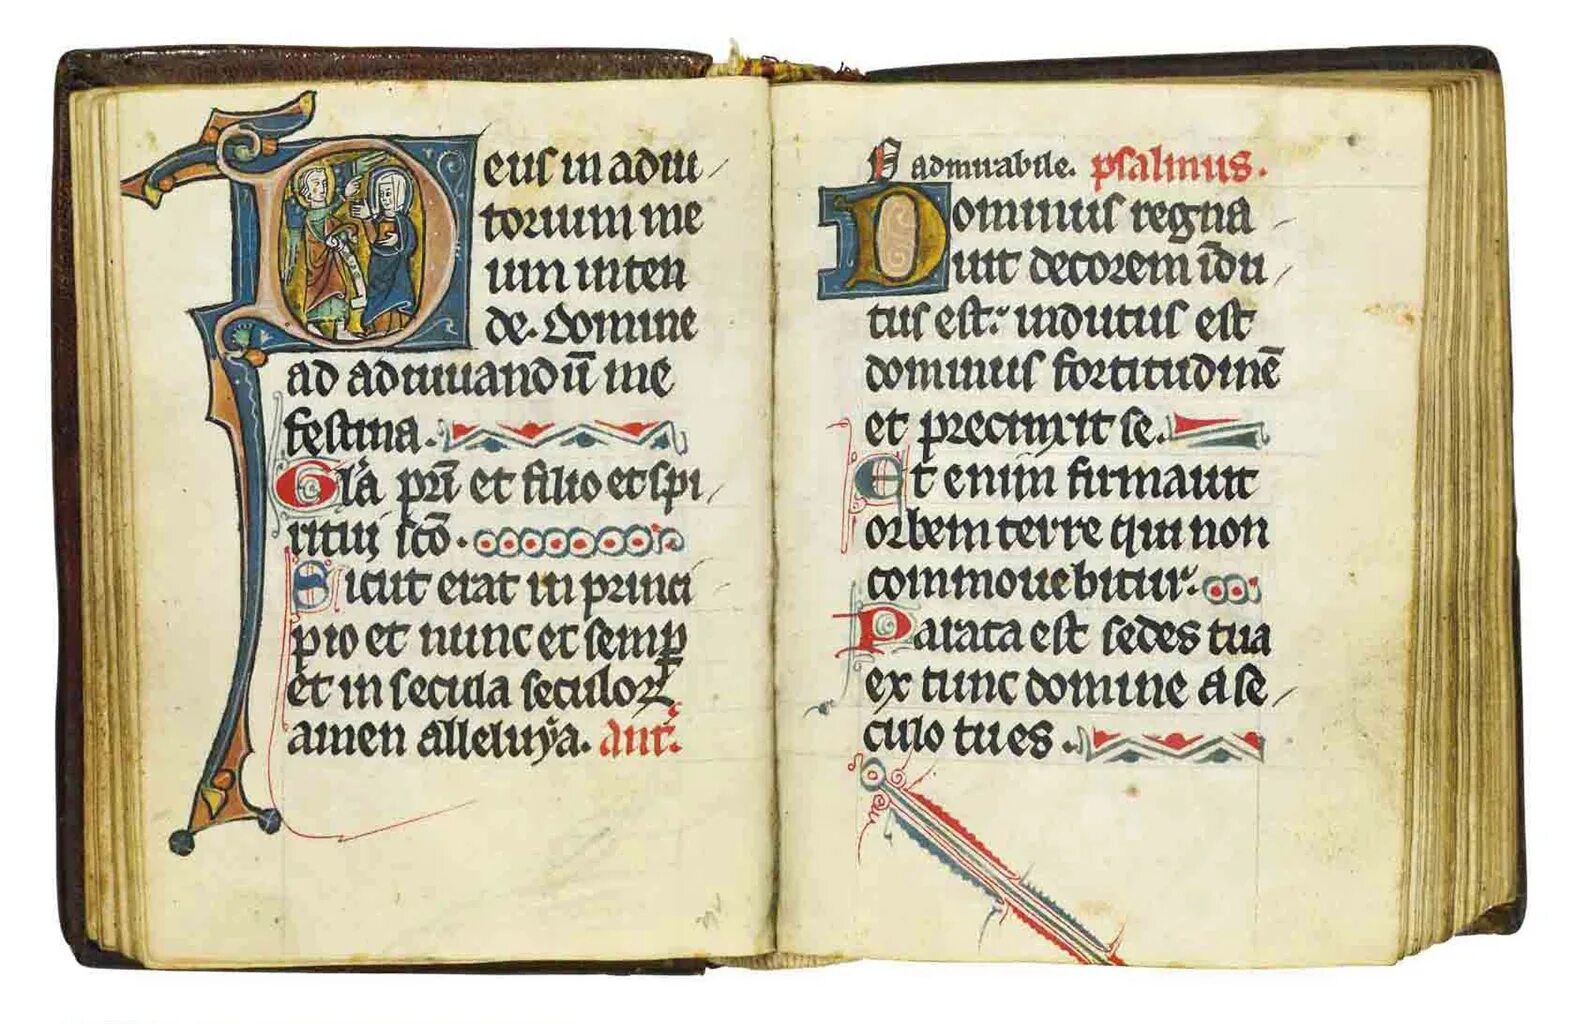 Deus in adiu
torium me
um inten
de. Domine
ad adiuuandū me
festina.
Gl'a pr̄i et filio et spi
ritui sc̄o.
Sicut erat in princi
pio et nunc et semp̱
et in secula seculoꝝ
amen alleluya. Ant.
O admirabile. psalmus.
Dominus regna
uit decorem īdu
tus est: indutus est
dominus fortitudinē
et precinxit se.
Et enim firmauit
orbem terre qui non
commouebitur.
Parata est sedes tua
ex tunc domine a se
culo tu es.